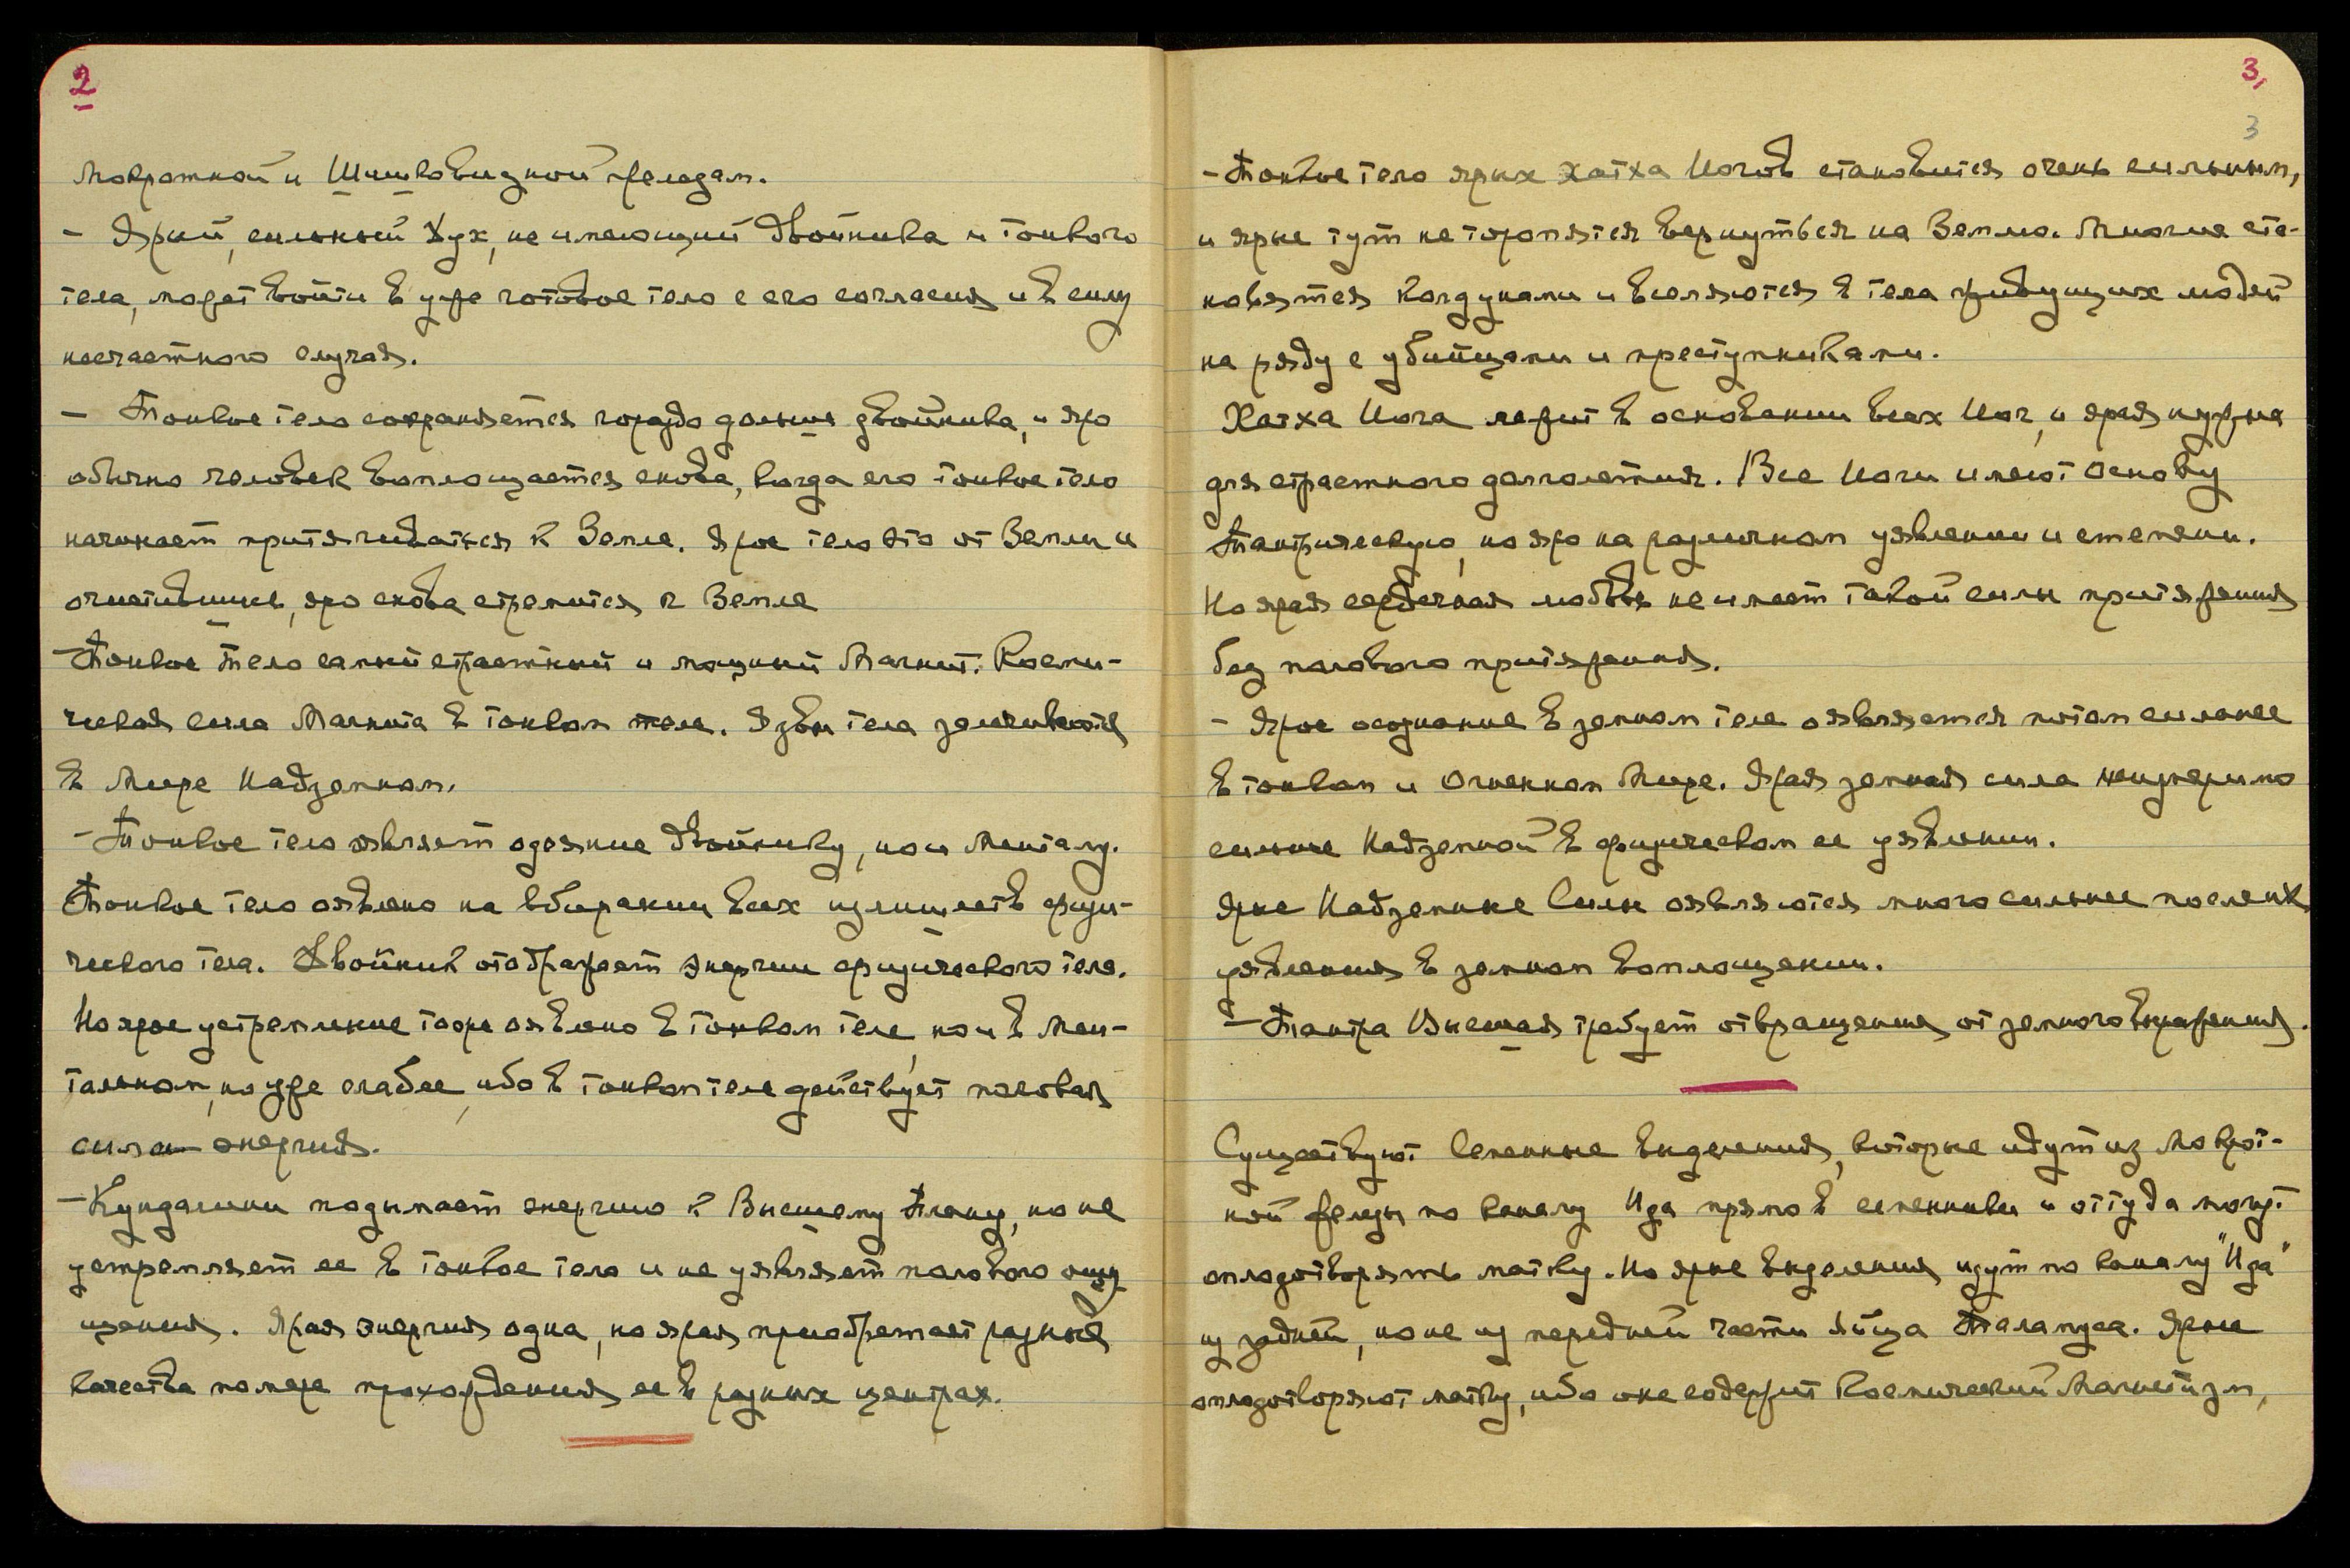 2
Мокротной и Шишковидной железам.
– Ярый, сильный Дух, не имеющий Двойника и тонкого
тела, может войти в уже готовое тело с его согласия и в силу
несчастного случая.
– Тонкое тело сохраняется гораздо дольше двойника, и яро
обычно человек воплощается снова, когда его тонкое тело
начинает притягиваться к Земле. Ярое тело это от Земли и
очистившись, яро снова стремится к Земле
– Тонкое тело самый страстный и мощный Магнит. Косми-
ческая сила Магнита в тонком теле. Язвы тела залечиваются
в Мире Надземном.
– Тонкое тело являет одеяние Двойнику, но и Менталу.
Тонкое тело оявлено на вбирании всех излишеств физи-
ческого тела. Двойник отображает энергии физического тела.
Но ярое устремление тоже оявлено в тонком теле, но и в Мен-
тальном, но уже слабее, ибо в тонком теле действует половая
сила – энергия.
– Кундалини подымает энергию к Высшему Плану, но не
устремляет ее в тонкое тело и не уявляет полового ощу
щения. Ярая энергия одна, но ярая приобретает разные
качества по мере прохождения ее в разных центрах.
3,
3
– Тонкое тело ярых Хатха Йогов становится очень сильным,
и ярые тут не торопятся вернуться на Землю. Многие ста-
новятся Колдунами и вселяются в тела живущих людей
на ряду с убийцами и преступниками.
Хатха Йога лежит в основании всех Йог, и ярая нужна
для страстного долголетия. Все Йоги имеют основу
Тантрическую, но яро на различном уявлении и степени.
Но ярая сердечная любовь не имеет такой силы притяжения
без полового притяжения.
– Ярое осознание в земном теле оявляется потом сильнее
в тонком и Огненном Мире. Ярая земная сила неизмеримо
сильнее Надземной в физическом ее уявлении.
Ярые Надземные Силы оявляются много сильнее после их
уявления в земном воплощении.
– Тантра Высшая требует отвращения от земного выражения.
Существуют Семенные выделения, которые идут из Мокрот-
ной железы по каналу Ида прямо в семенники и оттуда могут
оплодотворять матку. Но ярые выделения идут по каналу "Ида"
из задней, но не из передней части яйца Таламуса. Ярые
оплодотворяют матку, ибо она содержит Космический Магнетизм,